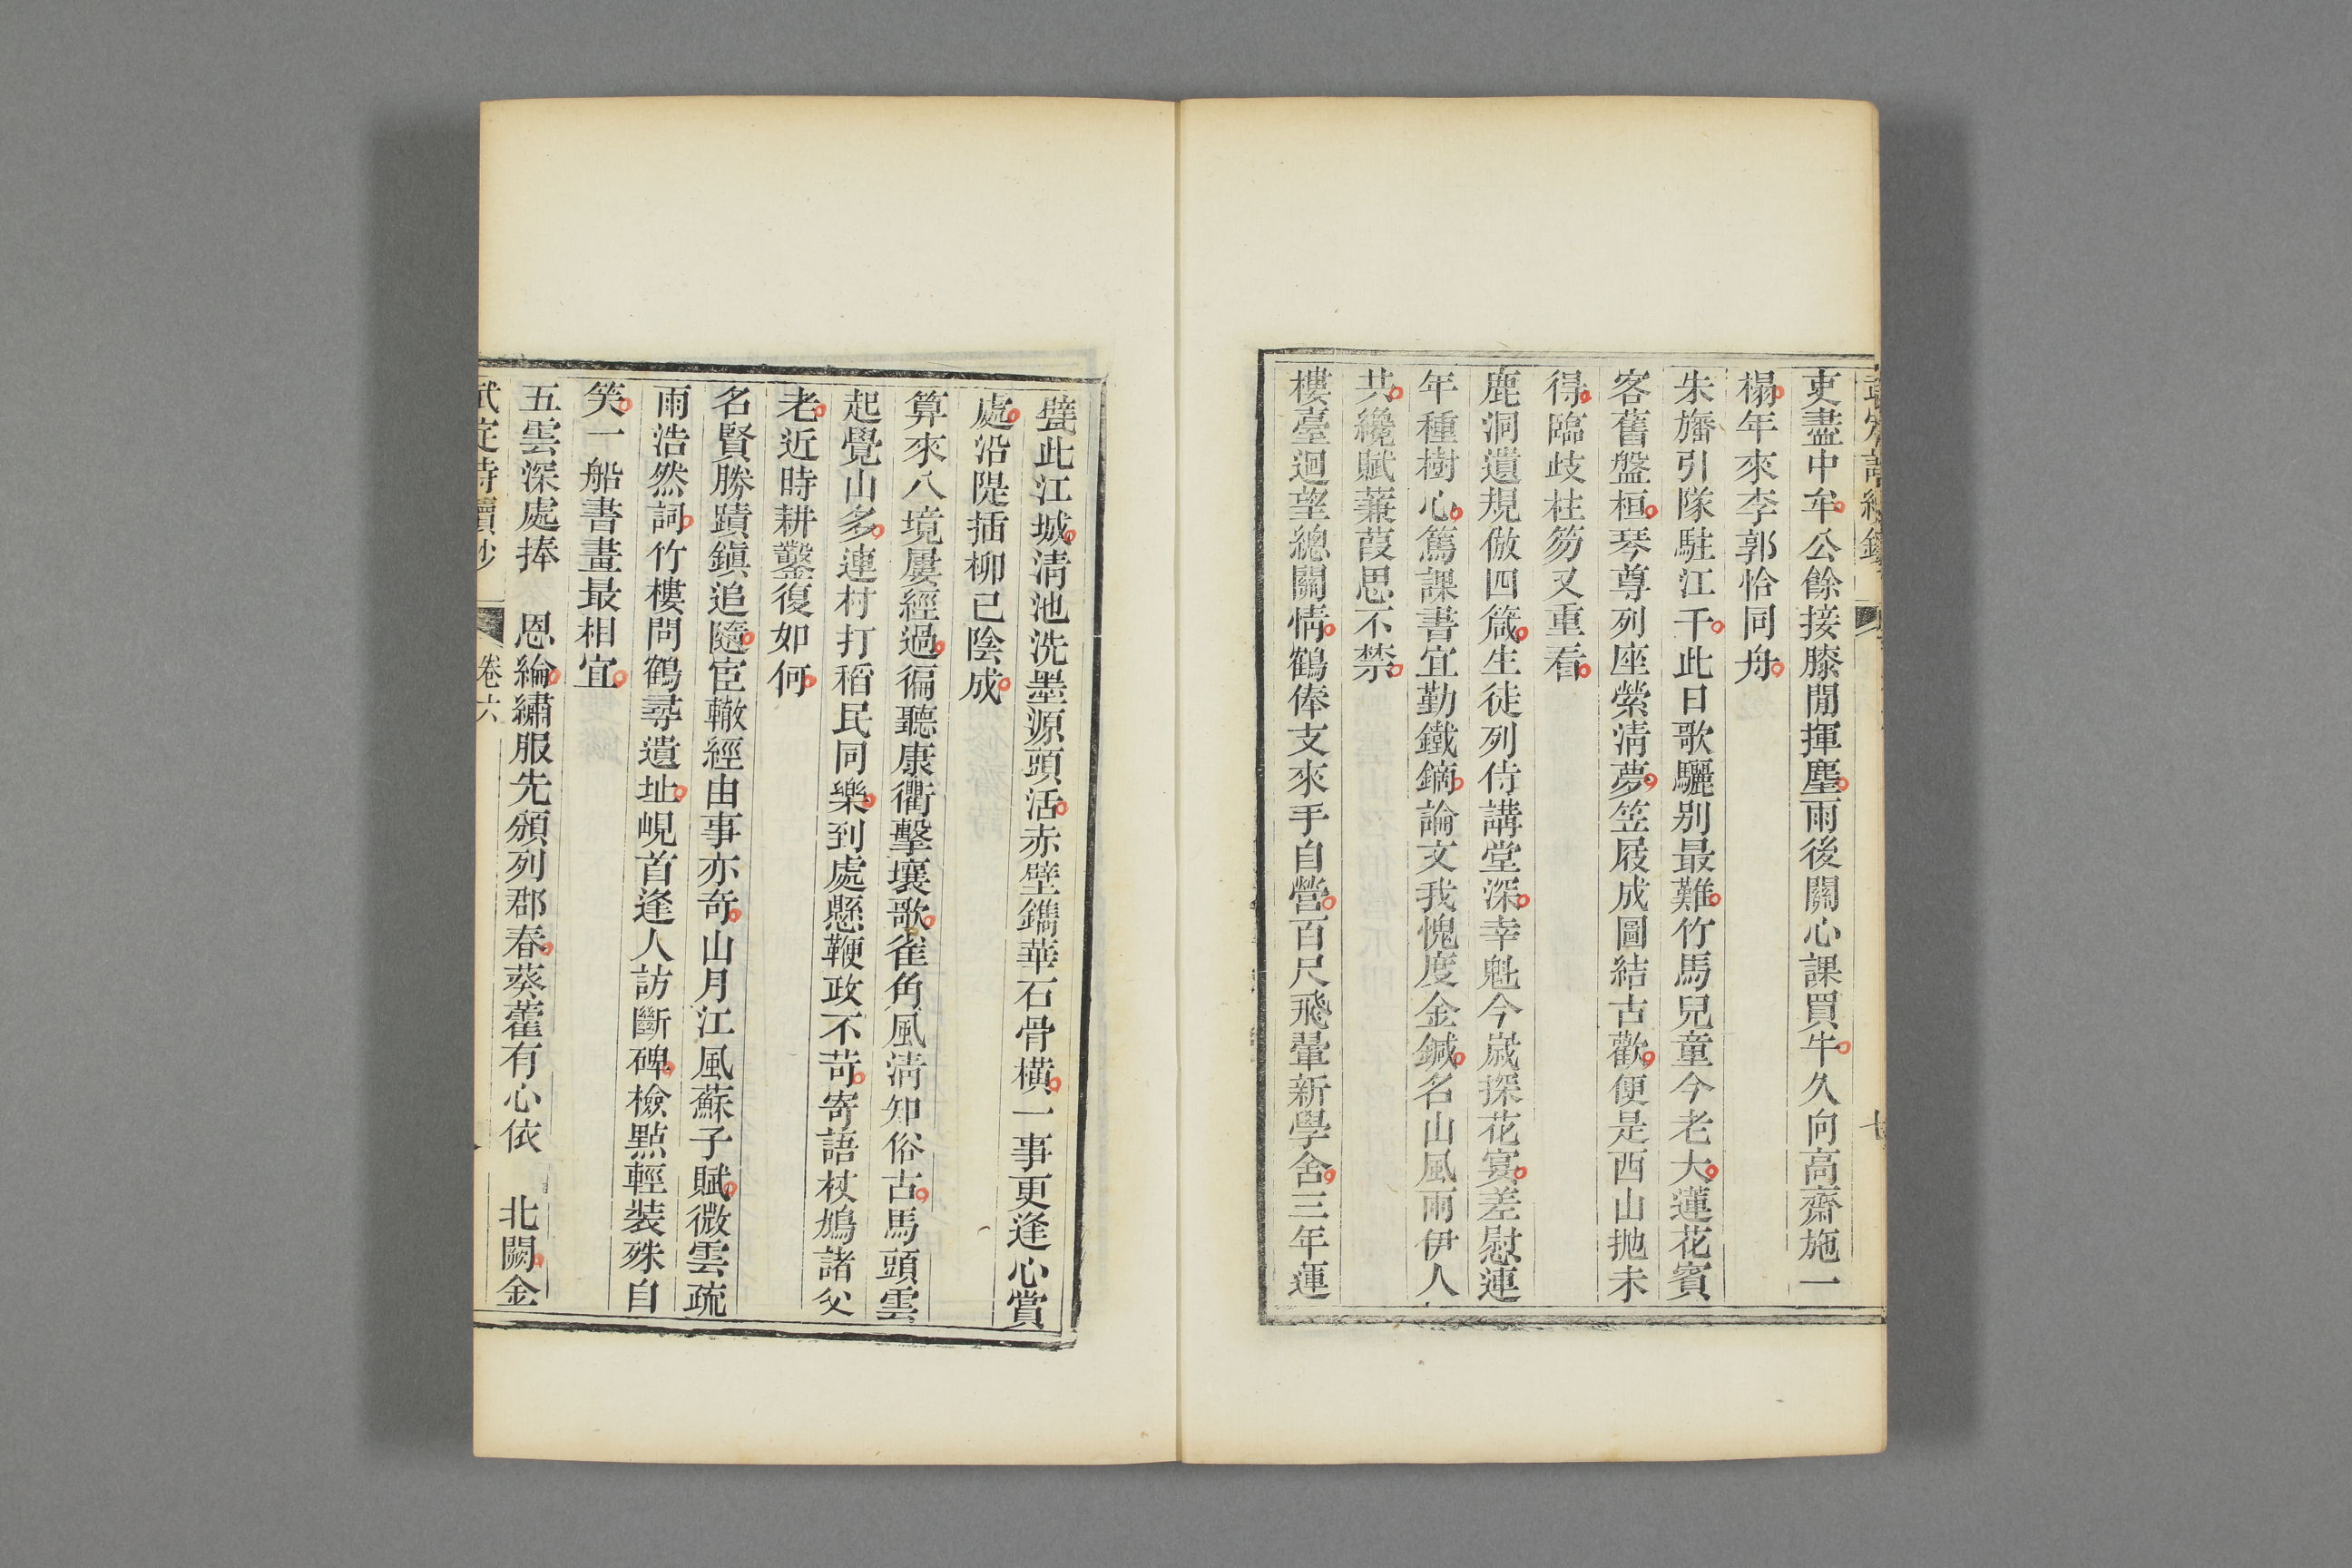 吏盡中牟公餘接膝閒揮麈雨後關心課買牛久向高齋施一
榻年來李郭恰同舟
朱旛引隊駐江干此日歌驪别最難竹馬兒童今老大蓮花賓
客舊盤桓琴尊列座縈清夢笠屐成圖結古歡便是西山抛未
得臨歧拄笏又重看
鹿洞遺規倣四箴生徒列侍講堂深幸魁今歲探花宴差慰連
年種樹心篤課書宜勤鐵鏑論文我愧度金鍼名山風雨伊人
共纔賦蒹葭思不禁
樓臺迴望總關情鶴俸支來手自營百尺飛翬新學舍三年運
甓此江城清池洗墨源頭活赤壁鐫華石骨橫一事更逢心賞
處沿隄插柳已陰成
算來八境屢經過徧聽康衢擊壤歌雀角風清知俗古馬頭雲
起覺山多連村打稻民同樂到處懸鞭政不苛寄語杖鳩諸父
老近時耕鑿復如何
名賢勝蹟鎭追隨宦轍經由事亦奇山月江風蘇子賦微雲疏
雨浩然詞竹樓問鶴尋遺址峴首逢人訪斷碑檢點輕裝殊自
笑一船書畫最相宜
五雲深處捧 恩綸繡服先頒列郡春葵藿有心依 北闕金
武定詩續鈔 卷六